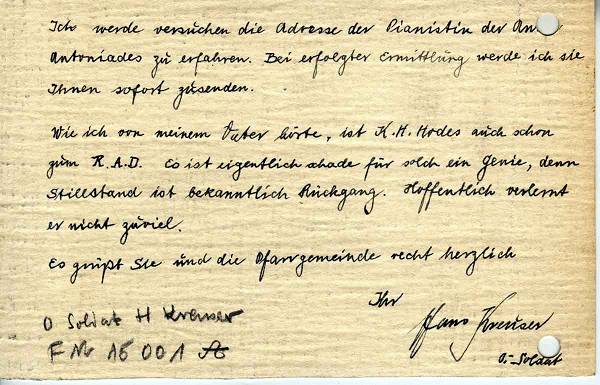 Ich werde versuchen die Adresse der Pianistin der
Antoniades zu erfahren. Bei erfolgter Ermittlung werde ich sie
Ihnen sofort zusenden.
Wie ich von meinem Vater hörte, ist K.H. Hodes auch schon
zum R.A.D. Es ist eigentlich schade für solch ein Genie, denn
Stillstand ist bekanntlich Rückgang. Hoffentlich verlernt
er nicht zuviel.
Es grüßt Sie und die Pfarrgemeinde recht herzlich
Ihr
Hans Kreuser
O.-Soldat
O Soldat H Kreuser
F Nr 15 001 A